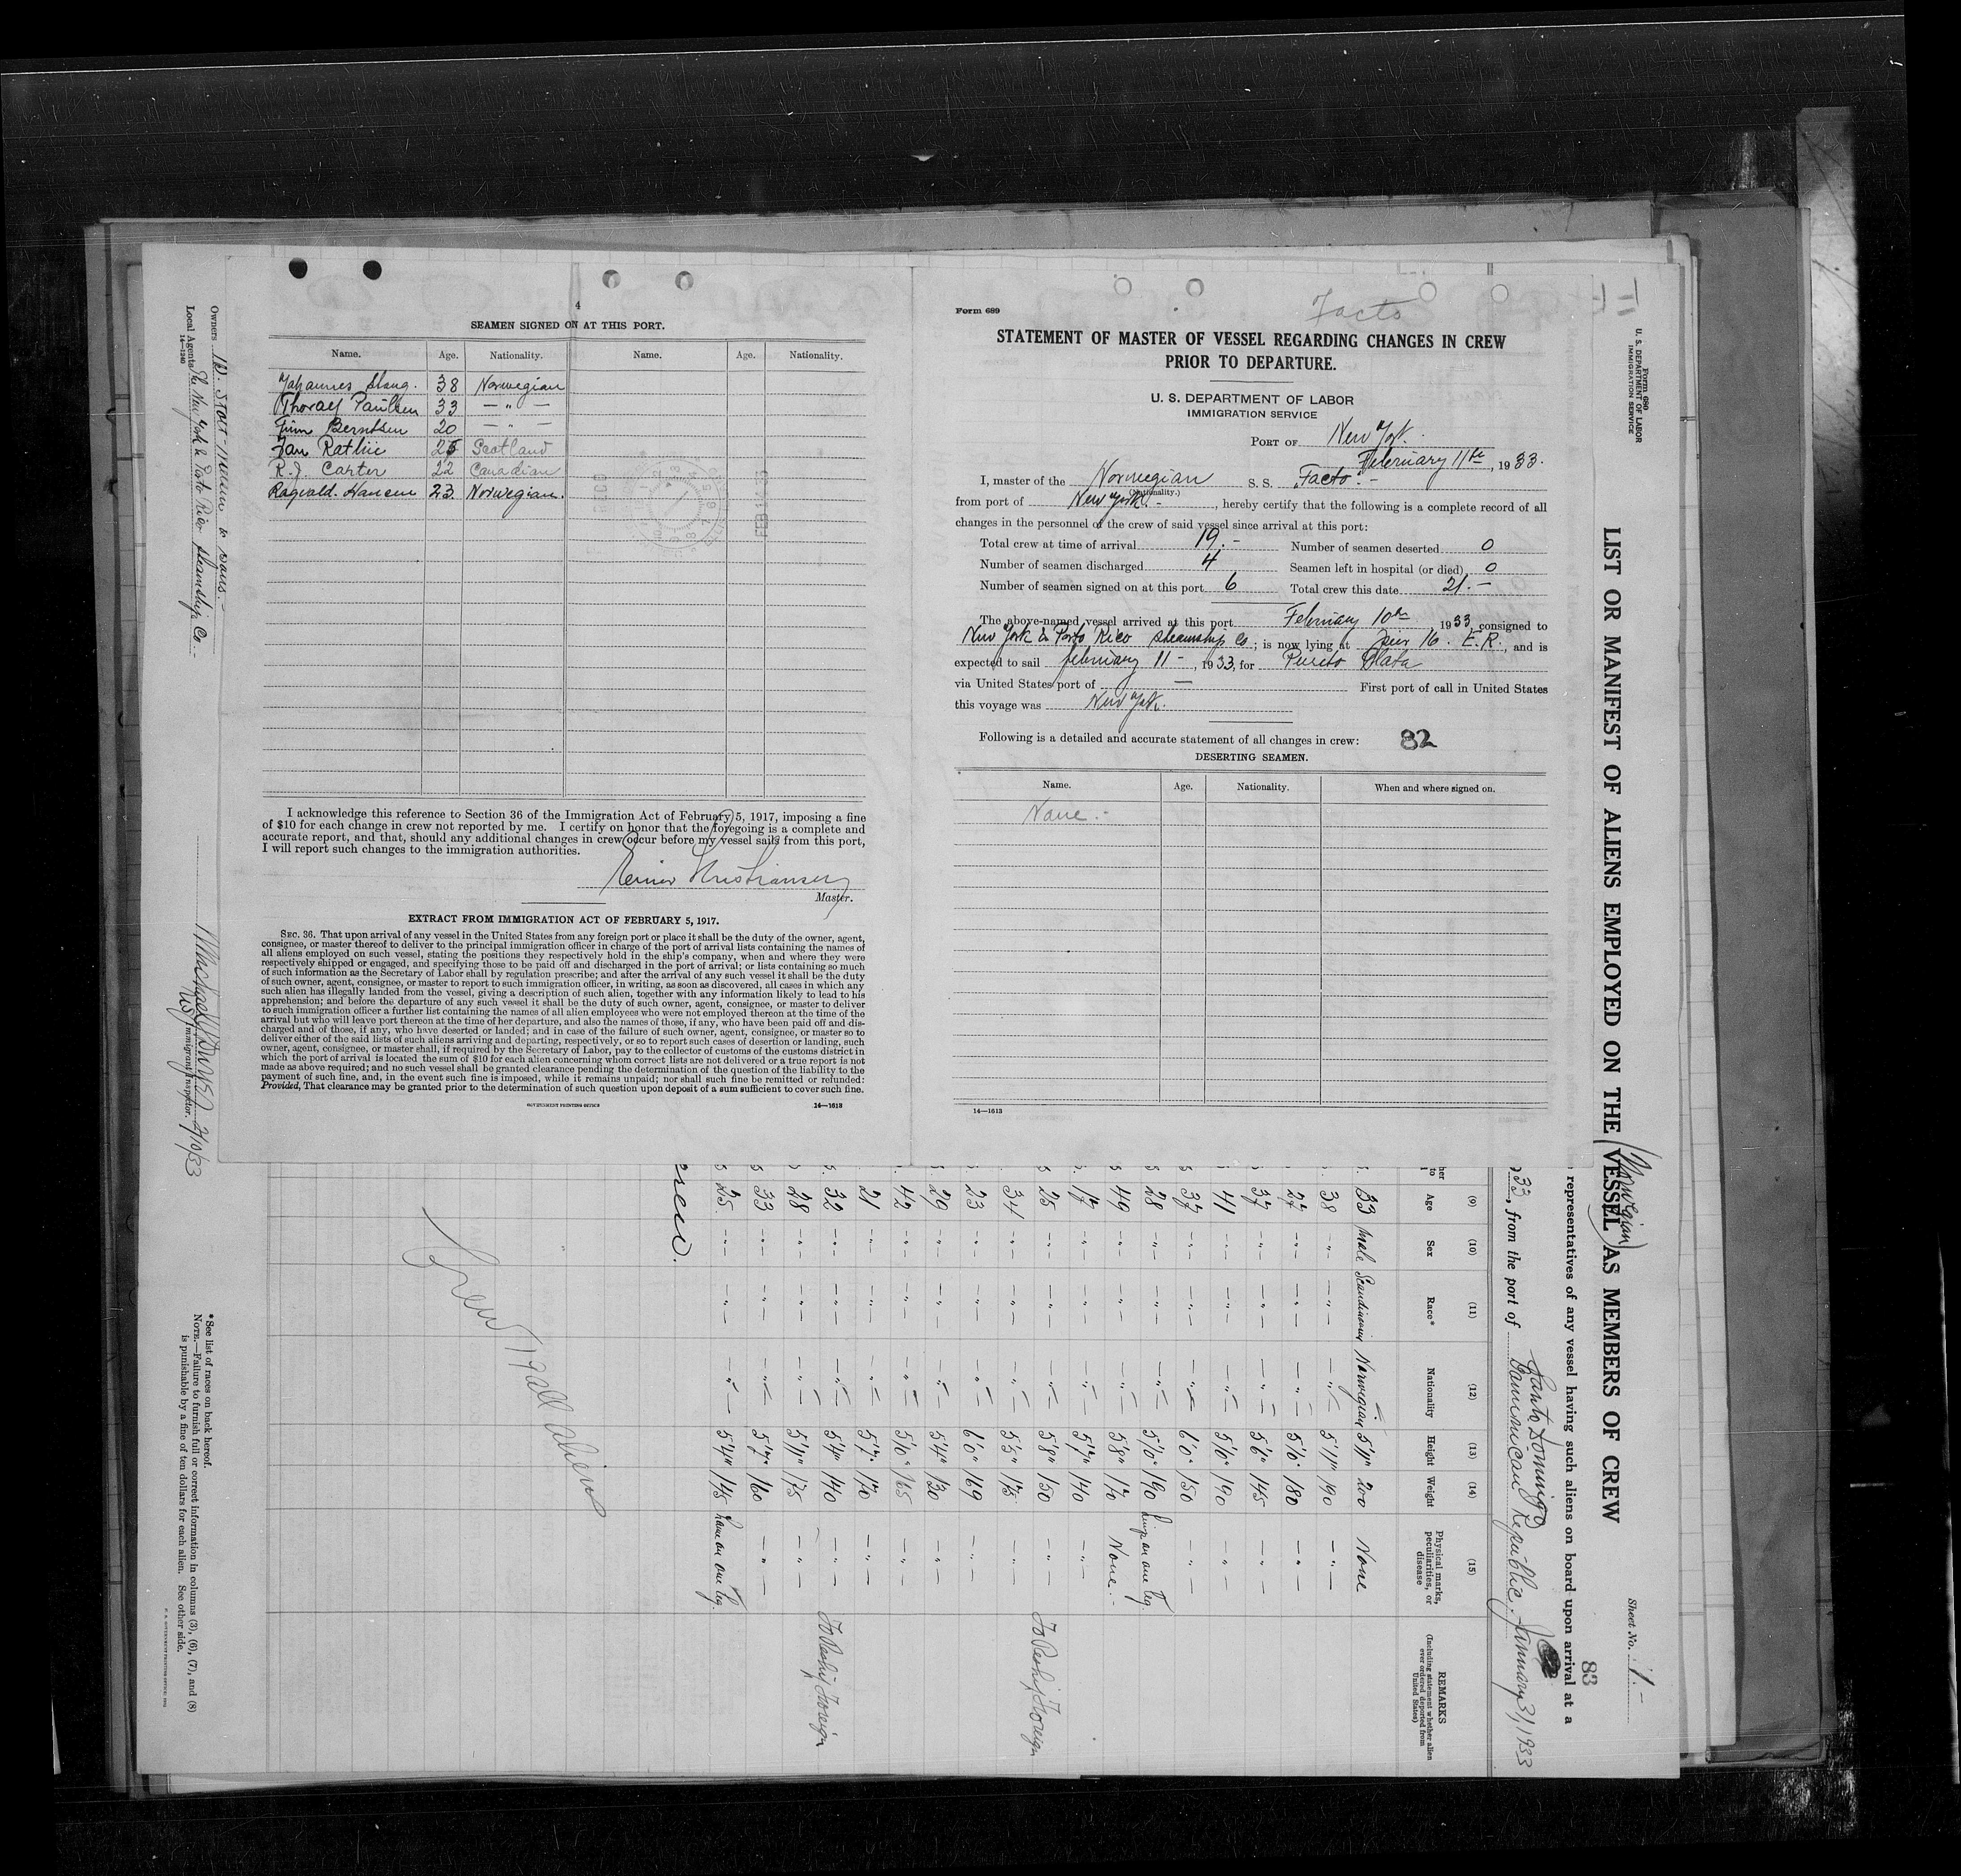 4
SEAMEN SIGNED ON AT THIS PORT.
Name. Age. Nationality. Name. Age. Nationality.
Johannes Slang. 38 Norwegian
Thoralf Paulsen 33 — " —
Finn Berntsen 20 — " —
Ian Rathie 25 Scotland
R.J. Carter 22 Canadian
Ragvald. Hansen 23. Norwegian.
I acknowledge this reference to Section 36 of the Immigration Act of February 5, 1917, imposing a fine
of $10 for each change in crew not reported by me. I certify on honor that the foregoing is a complete and
accurate report, and that, should any additional changes in crew occur before my vessel sails from this port,
I will report such changes to the immigration authorities.
Kristiansen
Master.
EXTRACT FROM IMMIGRATION ACT OF FEBRUARY 5, 1917.
SEC. 36. That upon arrival of any vessel in the United States from any foreign port or place it shall be the duty of the owner, agent,
consignee, or master thereof to deliver to the principal immigration officer in charge of the port of arrival lists containing the names of
all aliens employed on such vessel, stating the positions they respectively hold in the ship's company, when and where they were
respectively shipped or engaged, and specifying those to be paid off and discharged in the port of arrival; or lists containing so much
of such information as the Secretary of Labor shall by regulation prescribe; and after the arrival of any such vessel it shall be the duty
of such owner, agent, consignee, or master to report to such immigration officer, in writing, as soon as discovered, all cases in which any
such alien has illegally landed from the vessel, giving a description of such alien, together with any information likely to lead to his
apprehension; and before the departure of any such vessel it shall be the duty of such owner, agent, consignee, or master to deliver
to such immigration officer a further list containing the names of all alien employees who were not employed thereon at the time of the
arrival but who will leave port thereon at the time of her departure, and also the names of those, if any, who have been paid off and dis-
charged and of those, if any, who have deserted or landed; and in case of the failure of such owner, agent, consignee, or master so to
deliver either of the said lists of such aliens arriving and departing, respectively, or so to report such cases of desertion or landing, such
owner, agent, consignee, or master shall, if required by the Secretary of Labor, pay to the collector of customs of the customs district in
which the port of arrival is located the sum of $10 for each alien concerning whom correct lists are not delivered or a true report is not
made as above required; and no such vessel shall be granted clearance pending the determination of the question of the liability to the
payment of such fine, and, in the event such fine is imposed, while it remains unpaid; nor shall such fine be remitted or refunded:
Provided, That clearance may be granted prior to the determination of such question upon deposit of a sum sufficient to cover such fine.
GOVERNMENT PRINTING OFFICE 14—1613
Form 689
Facto
STATEMENT OF MASTER OF VESSEL REGARDING CHANGES IN CREW
PRIOR TO DEPARTURE.
U. S. DEPARTMENT OF LABOR
IMMIGRATION SERVICE
PORT OF New York.
February 11th, 1933.
I, master of the Norwegian S. S. "Facto".-
(Nationality.)
from port of New York.-, hereby certify that the following is a complete record of all
changes in the personnel of the crew of said vessel since arrival at this port:
Total crew at time of arrival 19.- Number of seamen deserted 0
Number of seamen discharged 4 Seamen left in hospital (or died) 0
Number of seamen signed on at this port 6 Total crew this date 21.-
The above-named vessel arrived at this port February 10th, 1933, consigned to
New York & Porto Rico Steamship Co; is now lying at Pier 16. E.R., and is
expected to sail february 11-, 1933, for Puerto Plata
via United States port of — First port of call in United States
this voyage was New York.
Following is a detailed and accurate statement of all changes in crew: 82
DESERTING SEAMEN.
Name. Age. Nationality. When and where signed on.
None.-
14—1613
Form 680
U. S. DEPARTMENT OF LABOR
IMMIGRATION SERVICE
Sheet No. 1.-
LIST OR MANIFEST OF ALIENS EMPLOYED ON THE (Norwegian) VESSEL AS MEMBERS OF CREW
83
representatives of any vessel having such aliens on board upon arrival at a
33, from the port of Santo Domingo Dominican Republic. January 31 1933
(9) (10) (11) (12) (13) (14) (15)
Age Sex Race* Nationality Height Weight Physical marks, peculiarities, or disease REMARKS (Including statement whether alien ever ordered deported from United States)
33 Male Scandinavian Norwegian 5'11" 200 None
38 — " — — " — — " — 5'11" 190 — " —
27 — " — — " — — " — 5'10" 180 — " —
37 — " — — " — — " — 5'6" 145 — " —
41 — " — — " — — " — 5'10" 190 — " —
37 — " — — " — — " — 6'0" 150 — " —
28 — " — — " — — " — 5'10" 190 on one leg.
49 — " — — " — — " — 5'8" 170 None.-
17 — " — — " — — " — 5'7" 140 — " —
25 — " — — " — — " — 5'8" 150 — " — To Reship Foreign
34 — " — — " — — " — 5'5" 175 — " —
23 — " — — " — — " — 6'0" 169 — " —
29 — " — — " — — " — 5'4" 130 — " —
42 — " — — " — — " — 5'10" 165 — " —
21 — " — — " — — " — 5'7" 170 — " —
32 — " — — " — — " — 5'4" 140 — " — To Reship Foreign
28 — " — — " — — " — 5'11" 175 — " —
33 — " — — " — — " — 5'7" 160 — " —
25 — " — — " — — " — 5'4" 145 on one leg.
crew.
Crew 19 all aliens
Owners
Local Agents The New York & Porto Rico Steamship Co.-
14—1240
2/10/33
US Immigrant Inspector.
* See list of races on back hereof.
NOTE.—Failure to furnish full or correct information in columns (3), (6), (7), and (8)
is punishable by a fine of ten dollars for each alien. See other side.